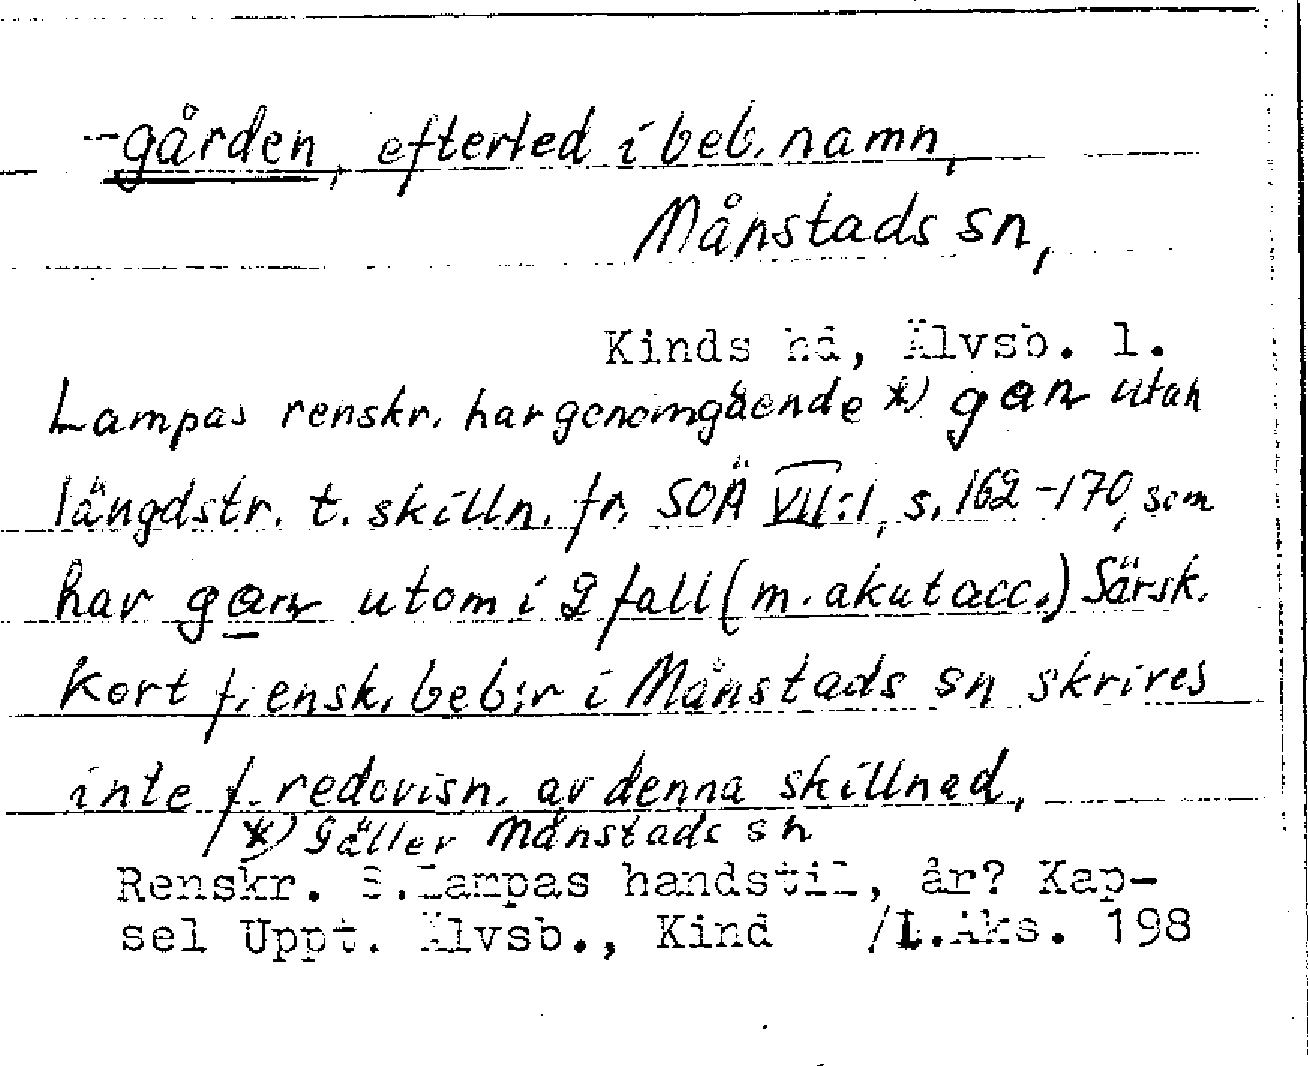 --gården, efterled i beb. namn,
Månstads sn,
Kinds hd, Älvsb. l.
Lampas renskr. har genomgående *) gan utan
längdstr. t. skilln. fr. SOÄ VII:1, s. 162-170, som
har gan utom i 2 fall (m. akut acc.) Särsk.
kort f. ensk. beb:r i Månstads sn skrives
inte f. redovisn. av denna skillnad,
*) Gäller Månstads sn
Renskr. S.Lampas handstil, år? Kap-
sel Uppt. Älvsb., Kind /L.Aks. 198